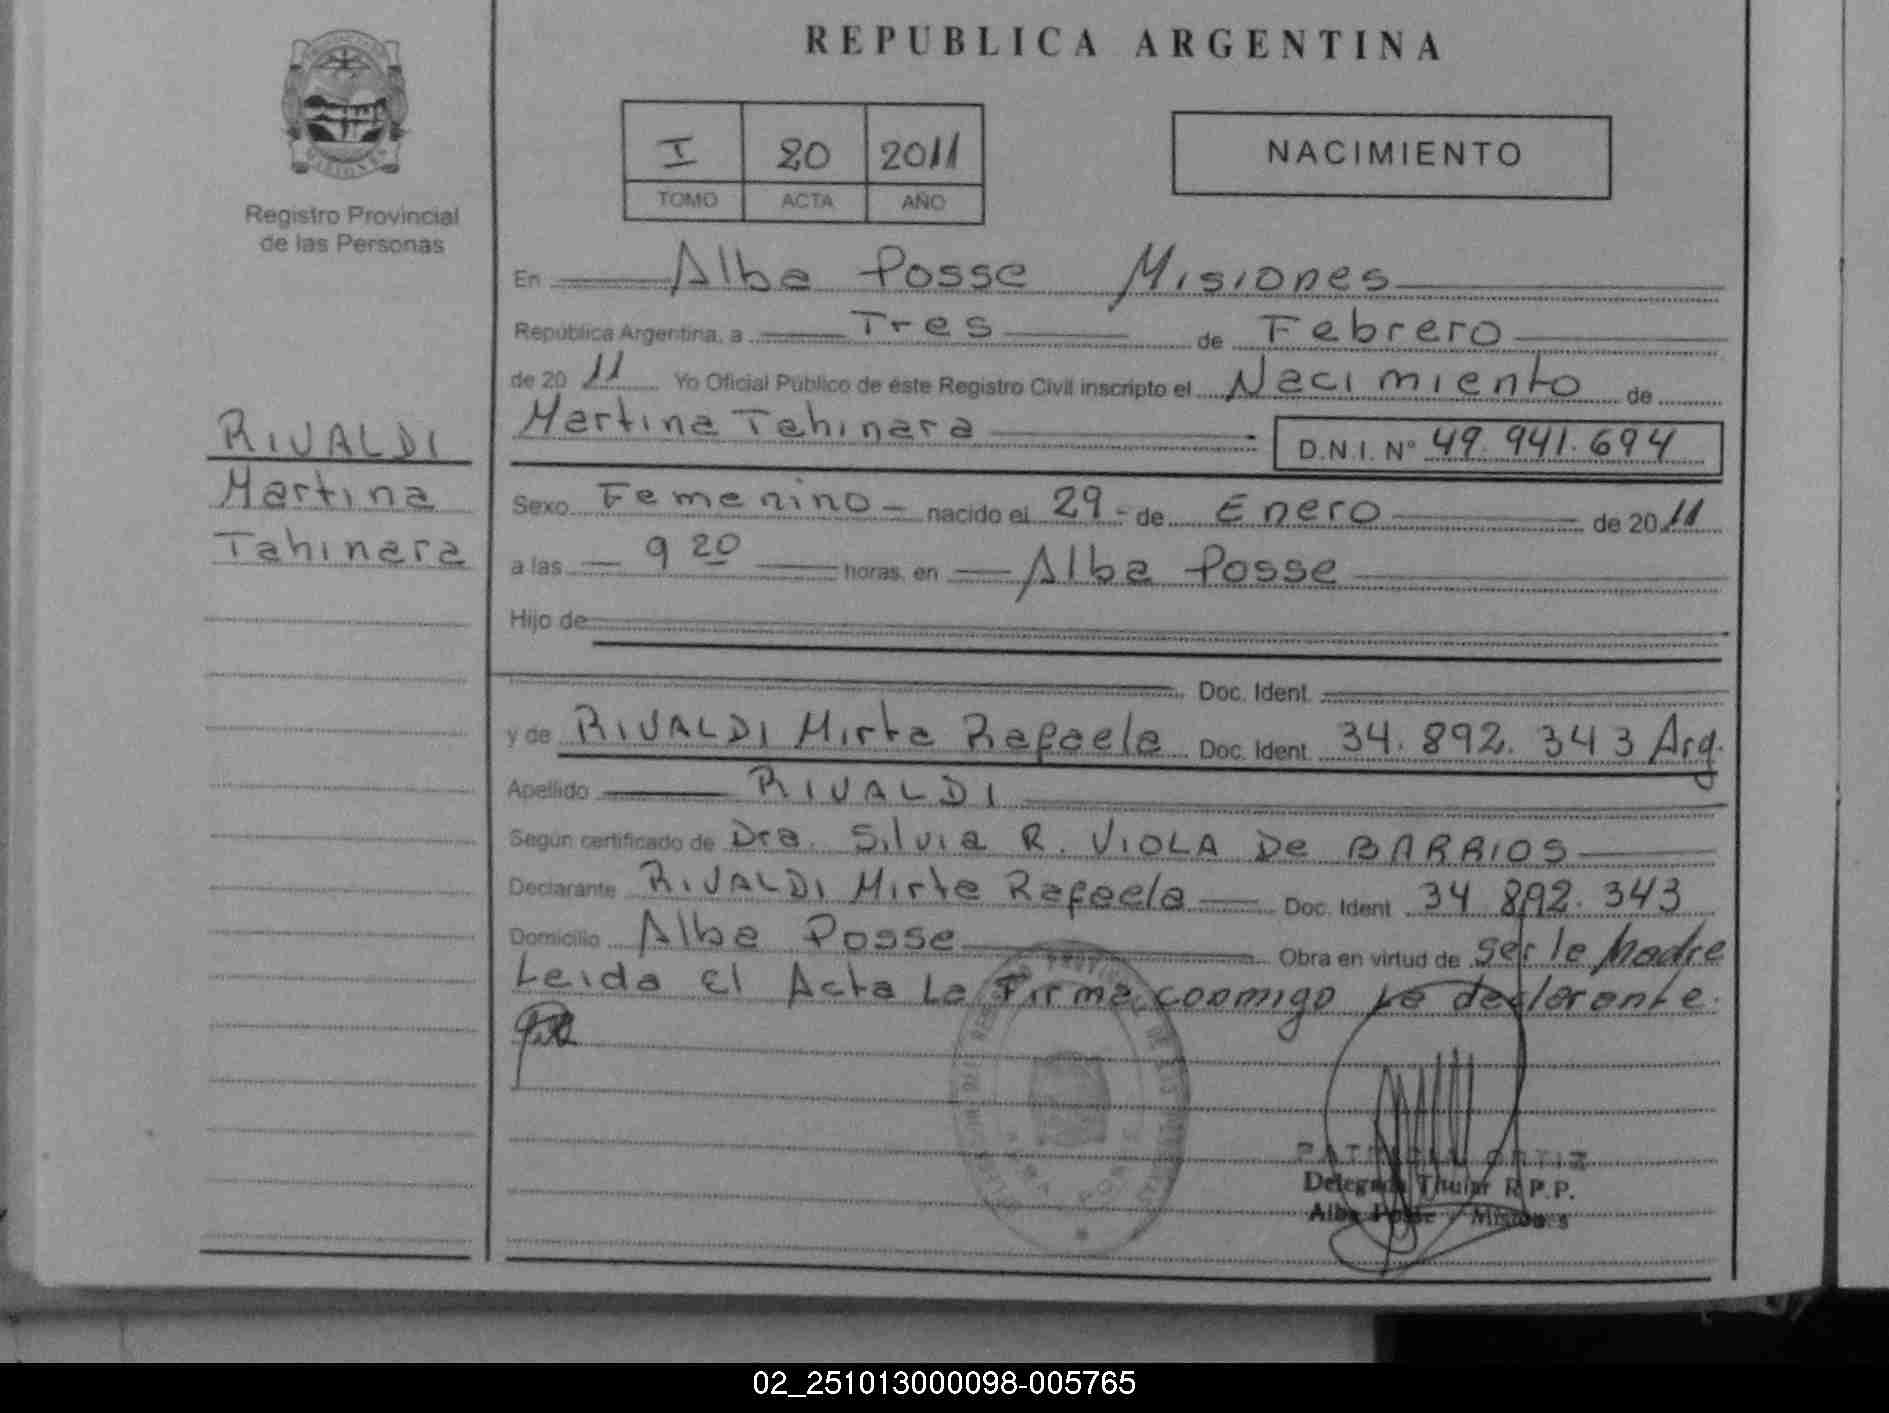 REPUBLICA ARGENTINA
MISIONES
Registro Provincial
de las Personas
I 20 2011
TOMO ACTA AÑO
NACIMIENTO
En Alba Posse Misiones
República Argentina, a Tres de Febrero
de 20 11 Yo Oficial Público de éste Registro Civil inscripto el Nacimiento de
Martina Tahinara D.N.I. Nº 49.941.694
RIVALDI
Martina
Tahinara
Sexo Femenino - nacido el 29 - de Enero de 20 11
a las 9 20 horas, en Alba Posse
Hijo de
Doc. Ident.
y de RIVALDI Mirta Rafaela Doc. Ident. 34.892.343 Arg.
Apellido RIVALDI
Según certificado de Dra. Silvia R. VIOLA De BARRIOS
Declarante RIVALDI Mirta Rafaela Doc. Ident 34 892.343
Domicilio Alba Posse Obra en virtud de ser la Madre
Leida El Acta La Firma conmigo La declarante.
ALBA POSSE
ORTIZ
Delegada Titular R.P.P.
Alba Posse - Misiones
02_251013000098-005765